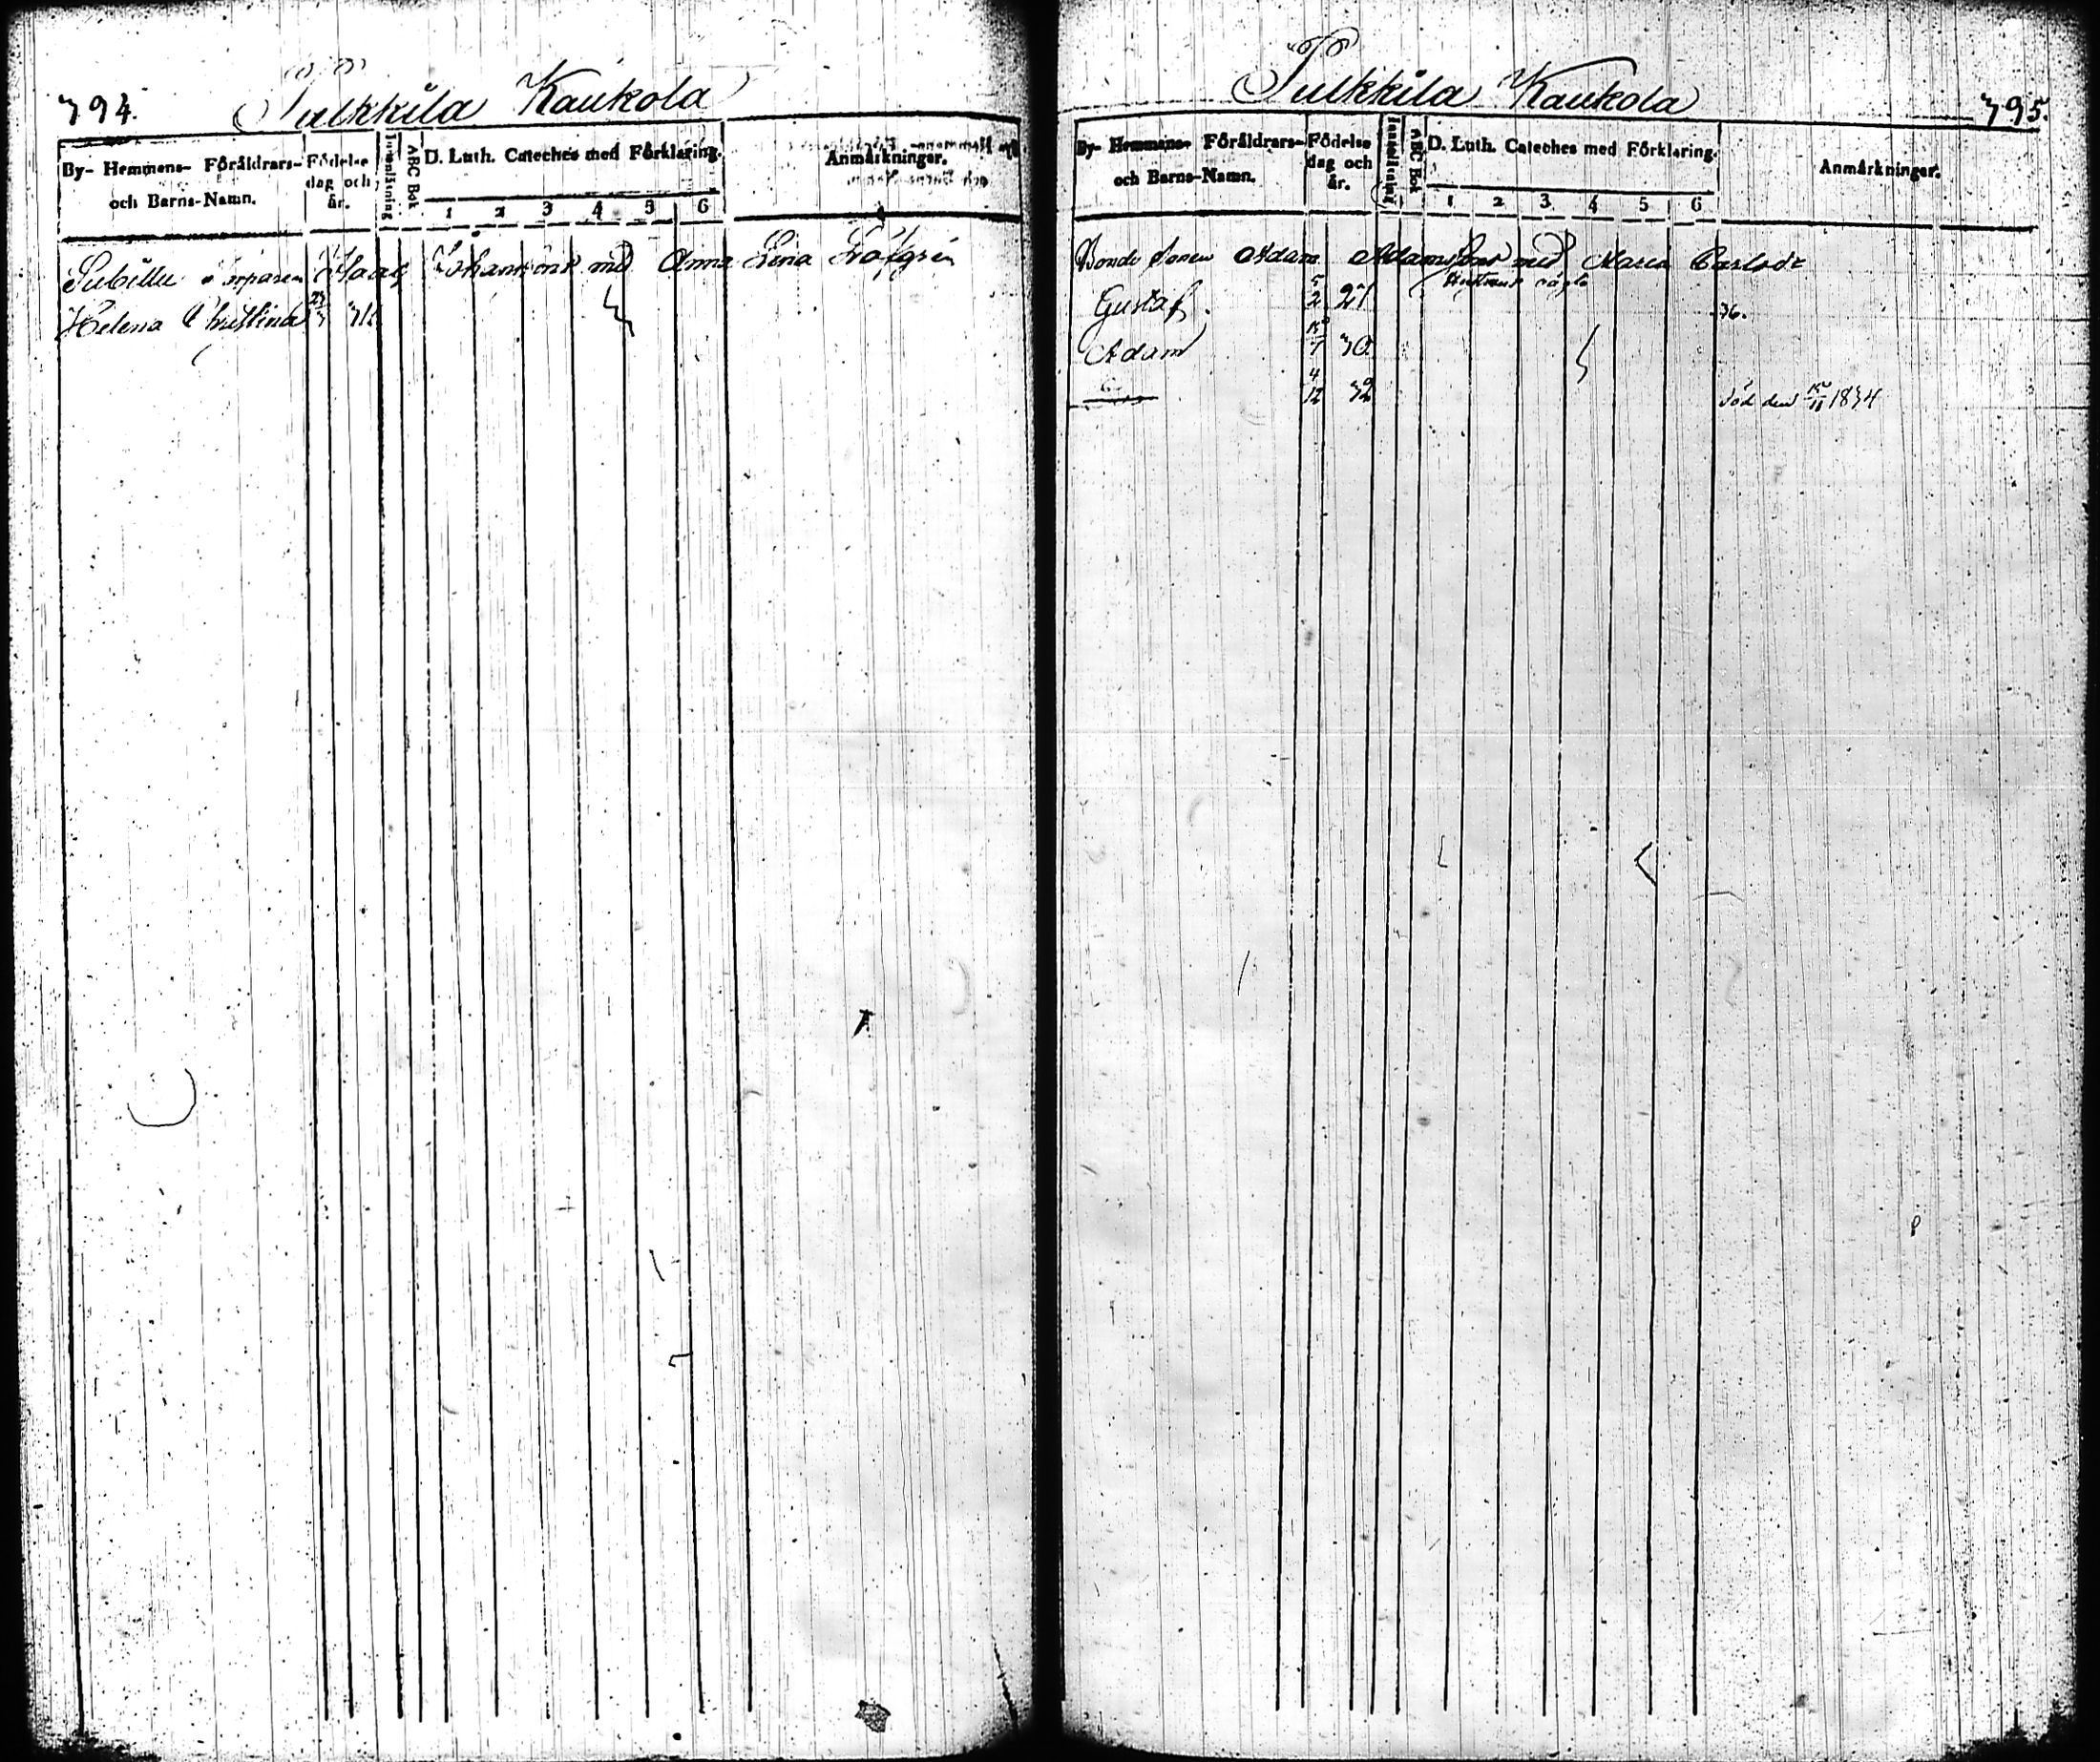 794.
Pulkkila Kaukola
By- Hemmens- Föräldrars-
och Barns-Namn.
Födelse
dag och
år.
Innanläsning
ABC Bok
D. Luth. Cateches med Förklaring.
1 2 3 4 5 6
Anmärkningar.
Isaac Johansson med Anna Lena Löfgren
Helena Christina
Pulkkila Kaukola
795.
By- Hemmans- Föräldrars-
och Barns-Namn.
Födelse
dag och
år.
Innanläsning
ABC Bok
D. Luth. Cateches med Förklaring.
1 2 3 4 5 6
Anmärkningar.
Bonde Sonen Adam Adamsson med Maria Carlsdr
Gustaf. 5/2 27 36.
Adam 30
4/12 32 död den 1834